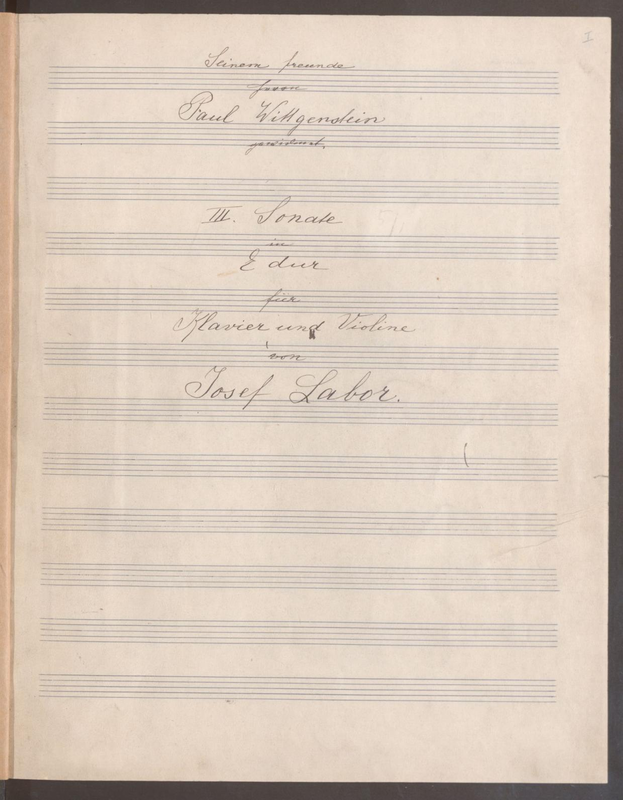 I
Seinem freunde
Herrn
Paul Wittgenstein
gewidmet.
III. Sonate
in
E dur
für
Klavier und Violine
von
Josef Labor.